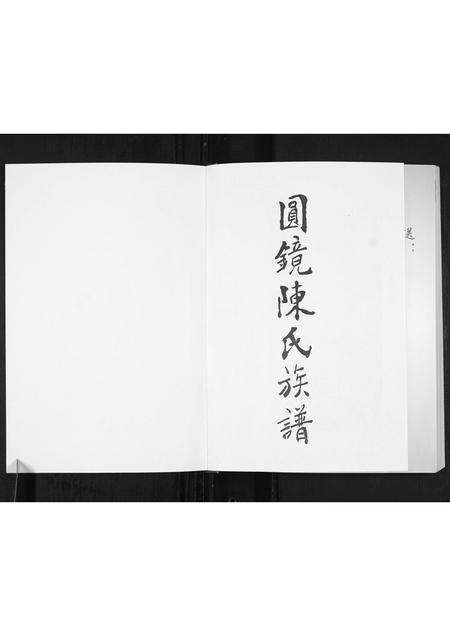 圓鏡陳氏族譜
送：